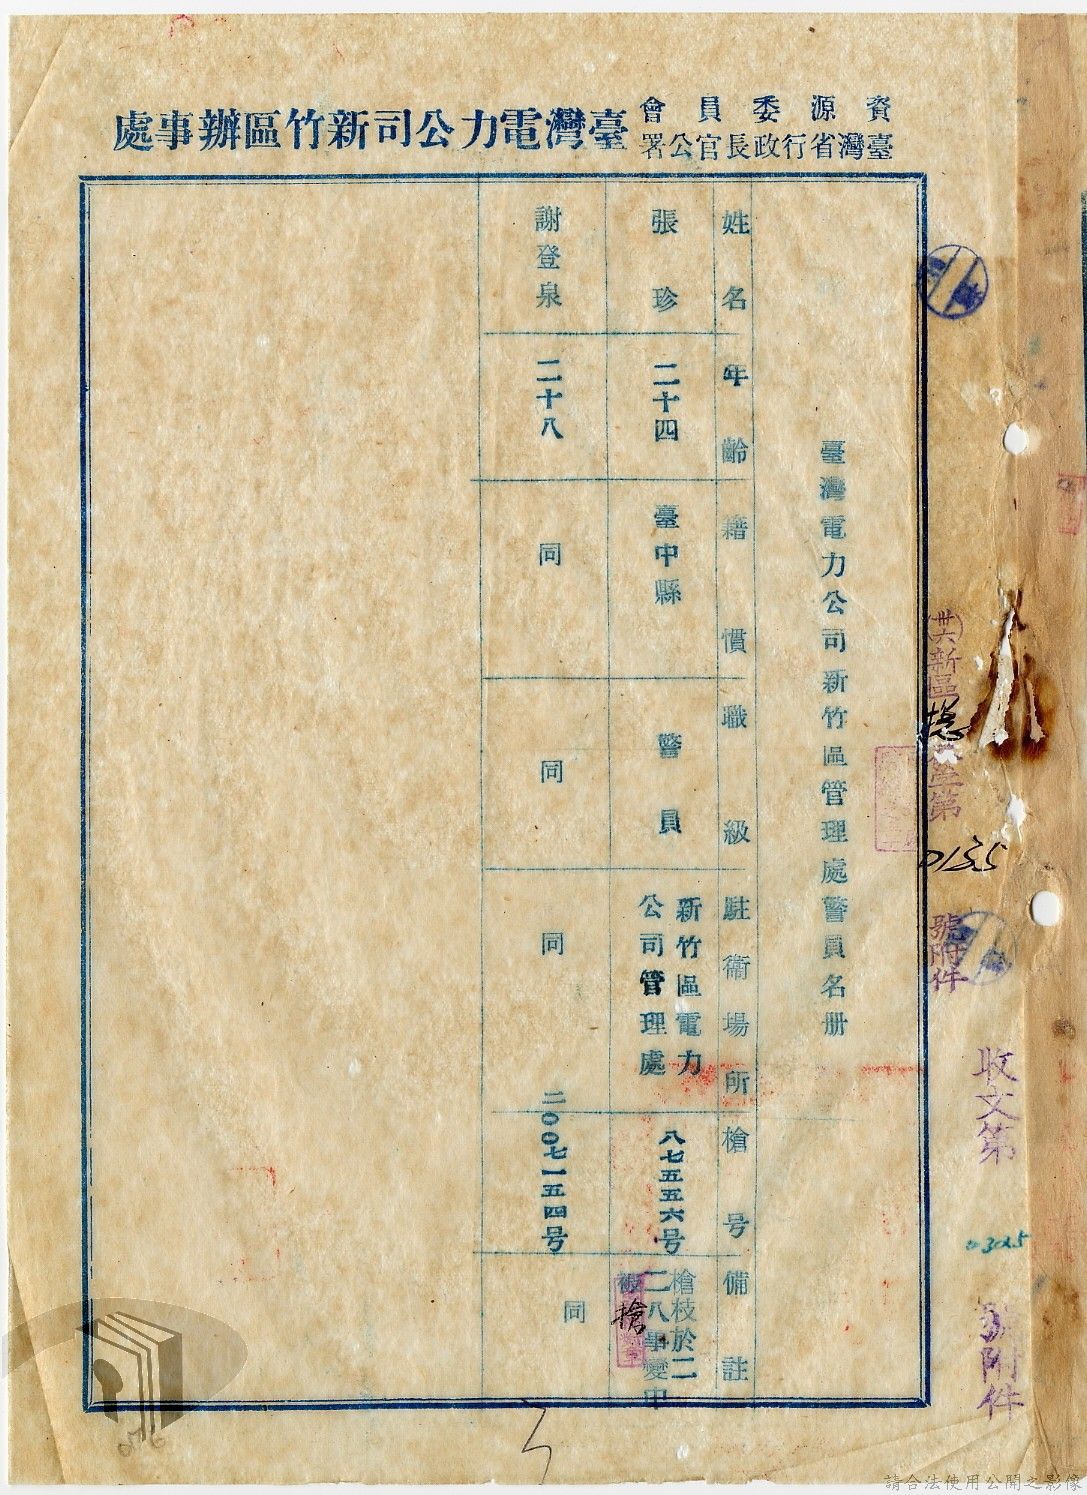 資源委員會
臺灣省行政長官公署
臺灣電力公司新竹區辦事處
臺灣電力公司新竹區管理處警員名册
姓名
年齡
籍慣
職級
駐衛場所
槍号
備註
張珍
二十四
臺中縣
警員
新竹區電力
公司管理處
八七五五六号
槍枝於二
二八事變中
被搶
謝登泉
二十八
同
同
同
二〇〇七一五四号
同
卅六新區
總
第
0135
號附件
收文第
0305
號附件
076
請合法使用公開之影像